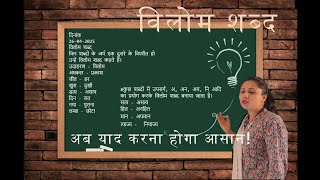 विलोम शब्द
दिनांक
26-04-2025
विलोम शब्द
जिन शब्दों के अर्थ एक दूसरे के विपरीत हो
उन्हें विलोम शब्द कहते हैं।
उदाहरण - विलोम
अंधकार - प्रकाश
जीत - हार
सुख - दुखी
आय - व्यय
दिन - रात
नया - पुराना
लम्बा - छोटा
#कुछ शब्दों में उपसर्ग, अ, अन, अप, नि आदि
का प्रयोग करके विलोम शब्द बनाया जाता है।
सत्य - असत्य
हित - अनहित
मान - अपमान
अब याद करना होगा आसान!